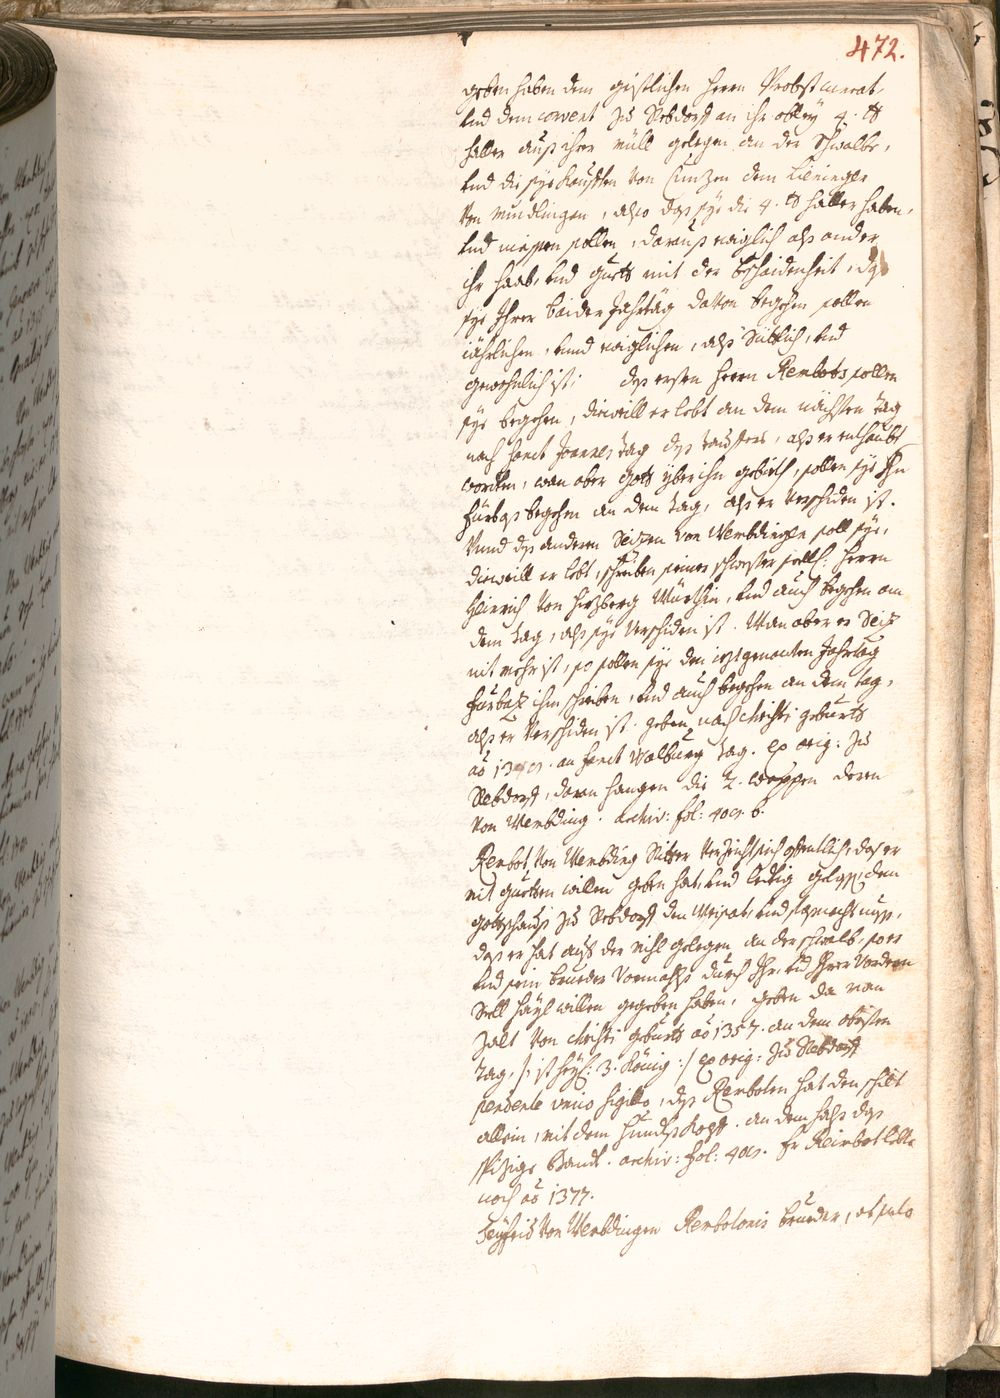 472.
geben haben dem geistlichen Herrn Probst
und dem convent zu Rebdorff an ihr oblay 4. ℔
haller auß ihrer müll gelegen an der Schwalbe,
und die sye kaufften von Cunzen dem
von Mündlingen, also das sye die 4. ℔ haller haben,
und niessen sollen, darauß ewiglich alß ander
ihr haab, und guett mit der bschaidenheit, das
sye Ihrer baider Jahrtäg davon begehen sollen
iährlichen, unnd ewiglichen, alß Sittlich, und
gewohnlich ist: deß ersten Herrn Rembots sollen
sye begehen, dieweill er lebt an dem nächsten tag
nach Sanct Joannes tag deß tauffers, alß er enthaubt
worden, wan aber Gott yber ihn gebieth, sollen sye Ihn
fürbas begehen an dem tag, alß er verschiden ist.
Unnd deß anderen Seizen von Wembdingen soll sye,
dieweill er lebt, schreiben seiner schwester seell: Herrn
Heinrich von Hirzberg Würthin, und auch begehen am
dem tag, alß sye verschiden ist. Wan aber er Seiz
nit mehr ist, so sollen sye den iezt genanten Jahrtag
fürbaß ihm schreiben, und auch begehen an dem tag,
alß er verschiden ist. geben nach Christi geburts
an Sanct Walburg tag. ex orig: zu
Rebdorff, daran hangen die 2. wappen deren
von Wembding. archiv: fol: 409. b.
Rembot von Wembding Ritter verzeicht sich offentlich, das er
mit guetten willen geben hat, und ledig gelassen dem
gottshauß zu Rebdorff den
das er hat auß der mihl gelegen an der schwalb, so er
und sein brueder vormahls durch Ihr, und Ihrer Vordern
Seell hayl willen gegeben haben, geben da man
zalt von Christi geburts aō 1357. an dem obristen
tag, /: ist heyl: 3. König :/ ex orig: zu Rebdorff
pendente unico sigillo, deß Remboten hat den schilt
allein, mit dem Hundtskopff. an dem halß das
spizige Bandt. archiv: fol: 409. Hr Reimbot lebte
noch aō 1377.
Seyfrid von Wembdingen Rembotonis brueder, ut puto